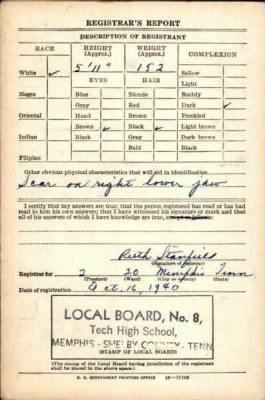 REGISTRAR'S REPORT
DESCRIPTION OF REGISTRANT
RACE HEIGHT (Approx.) WEIGHT (Approx.) COMPLEXION
White ✓ 5' 11" 152 Sallow
EYES HAIR Light
Negro Blue Blonde Ruddy
Gray Red Dark ✓
Oriental Hazel Brown Freckled
Brown ✓ Black ✓ Light brown
Indian Black Gray Dark brown
Bald Black
Filipino
Other obvious physical characteristics that will aid in identification
Scar on right lower jaw
I certify that my answers are true; that the person registered has read or has had read to him his own answers; that I have witnessed his signature or mark and that all of his answers of which I have knowledge are true, except
Ruth Stanfield
(Signature of registrar)
Registrar for 2 20 Memphis Tenn
(Precinct) (Ward) (City or county) (State)
Date of registration Oct. 16, 1940
LOCAL BOARD, No. 8,
Tech High School,
MEMPHIS - SHELBY COUNTY - TENN
(STAMP OF LOCAL BOARD)
(The stamp of the Local Board having jurisdiction of the registrant shall be placed in the above space.)
U. S. GOVERNMENT PRINTING OFFICE